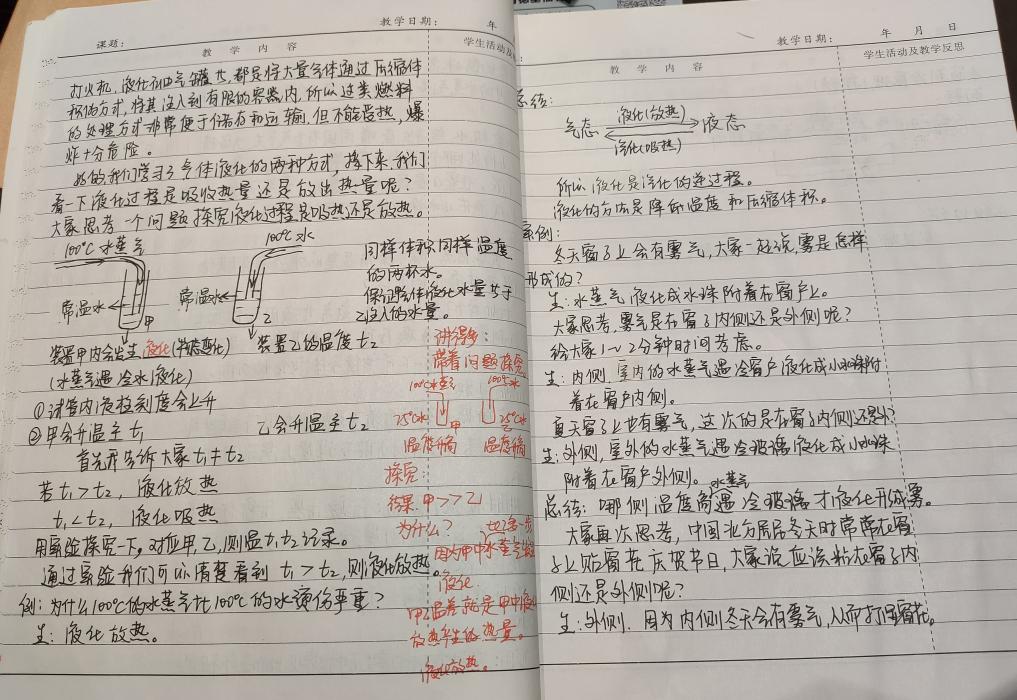 课题：
教学日期： 年
教 学 内 容
学生活动及
打火机，液化石油气罐等，都是将大量气体通过压缩体
积的方式，将其注入到有限的容器内，所以这类燃料
的处理方式非常便于储存和运输，但不能受热，爆
炸十分危险。
好的我们学习了气体液化的两种方式，接下来，我们
看一下液化过程是吸收热量还是放出热量呢？
大家思考一个问题探究液化过程是吸热还是放热。
100℃ 水蒸气
100℃ 水
常温水
甲
常温水
乙
同样体积同样温度
的两杯水。
保证气体液化水量等于
乙注入的水量。
装置甲内会发生液化(物态变化)
装置乙的温度 t₂
(水蒸气遇冷水液化)
①试管内液柱刻度会上升
②甲会升温至 t₁
乙会升温至 t₂
首先告诉大家 t₁≠t₂
若 t₁>t₂，液化放热
t₁<t₂，液化吸热
用实验探究一下。对应甲、乙，测温t₁t₂记录。
通过实验我们可以清楚看到 t₁>t₂，则液化放热。
例：为什么100℃的水蒸气比100℃的水烫伤严重？
生：液化放热。
讲得多：
带着问题探究
100℃水蒸气
100℃水
25℃水
甲
25℃水
乙
温度升高
温度升高
探究：
结果：甲>>乙
为什么？
比乙多一步
因为甲中水蒸气
液化
甲乙温差就是甲中液化
放热产生的热量。
液化放热。
教学日期： 年 月 日
教 学 内 容
学生活动及教学反思
总结：
气态
液化(放热)
液态
汽化(吸热)
所以液化是汽化的逆过程。
液化的方法是降低温度和压缩体积。
案例：
冬天窗子上会有雾气，大家一起说，雾是怎样
形成的？
生：水蒸气液化成水珠附着在窗户上。
大家思考，雾气是在窗子内侧还是外侧呢？
给大家1~2分钟时间考虑。
生：内侧，室内的水蒸气遇冷窗户液化成小水珠附
着在窗户内侧。
夏天窗子上也有雾气，这次的是在窗子内侧还是外？
生：外侧，室外的水蒸气遇冷玻璃液化成小水珠
附着在窗户外侧。
水蒸气
总结：哪侧温度高遇冷玻璃才液化形成雾。
大家再次思考，中国北方居民冬天时常常在窗
子上贴窗花庆贺节日，大家说应该粘在窗子内
侧还是外侧呢？
生：外侧，因为内侧冬天会有雾气，从而打湿窗花。